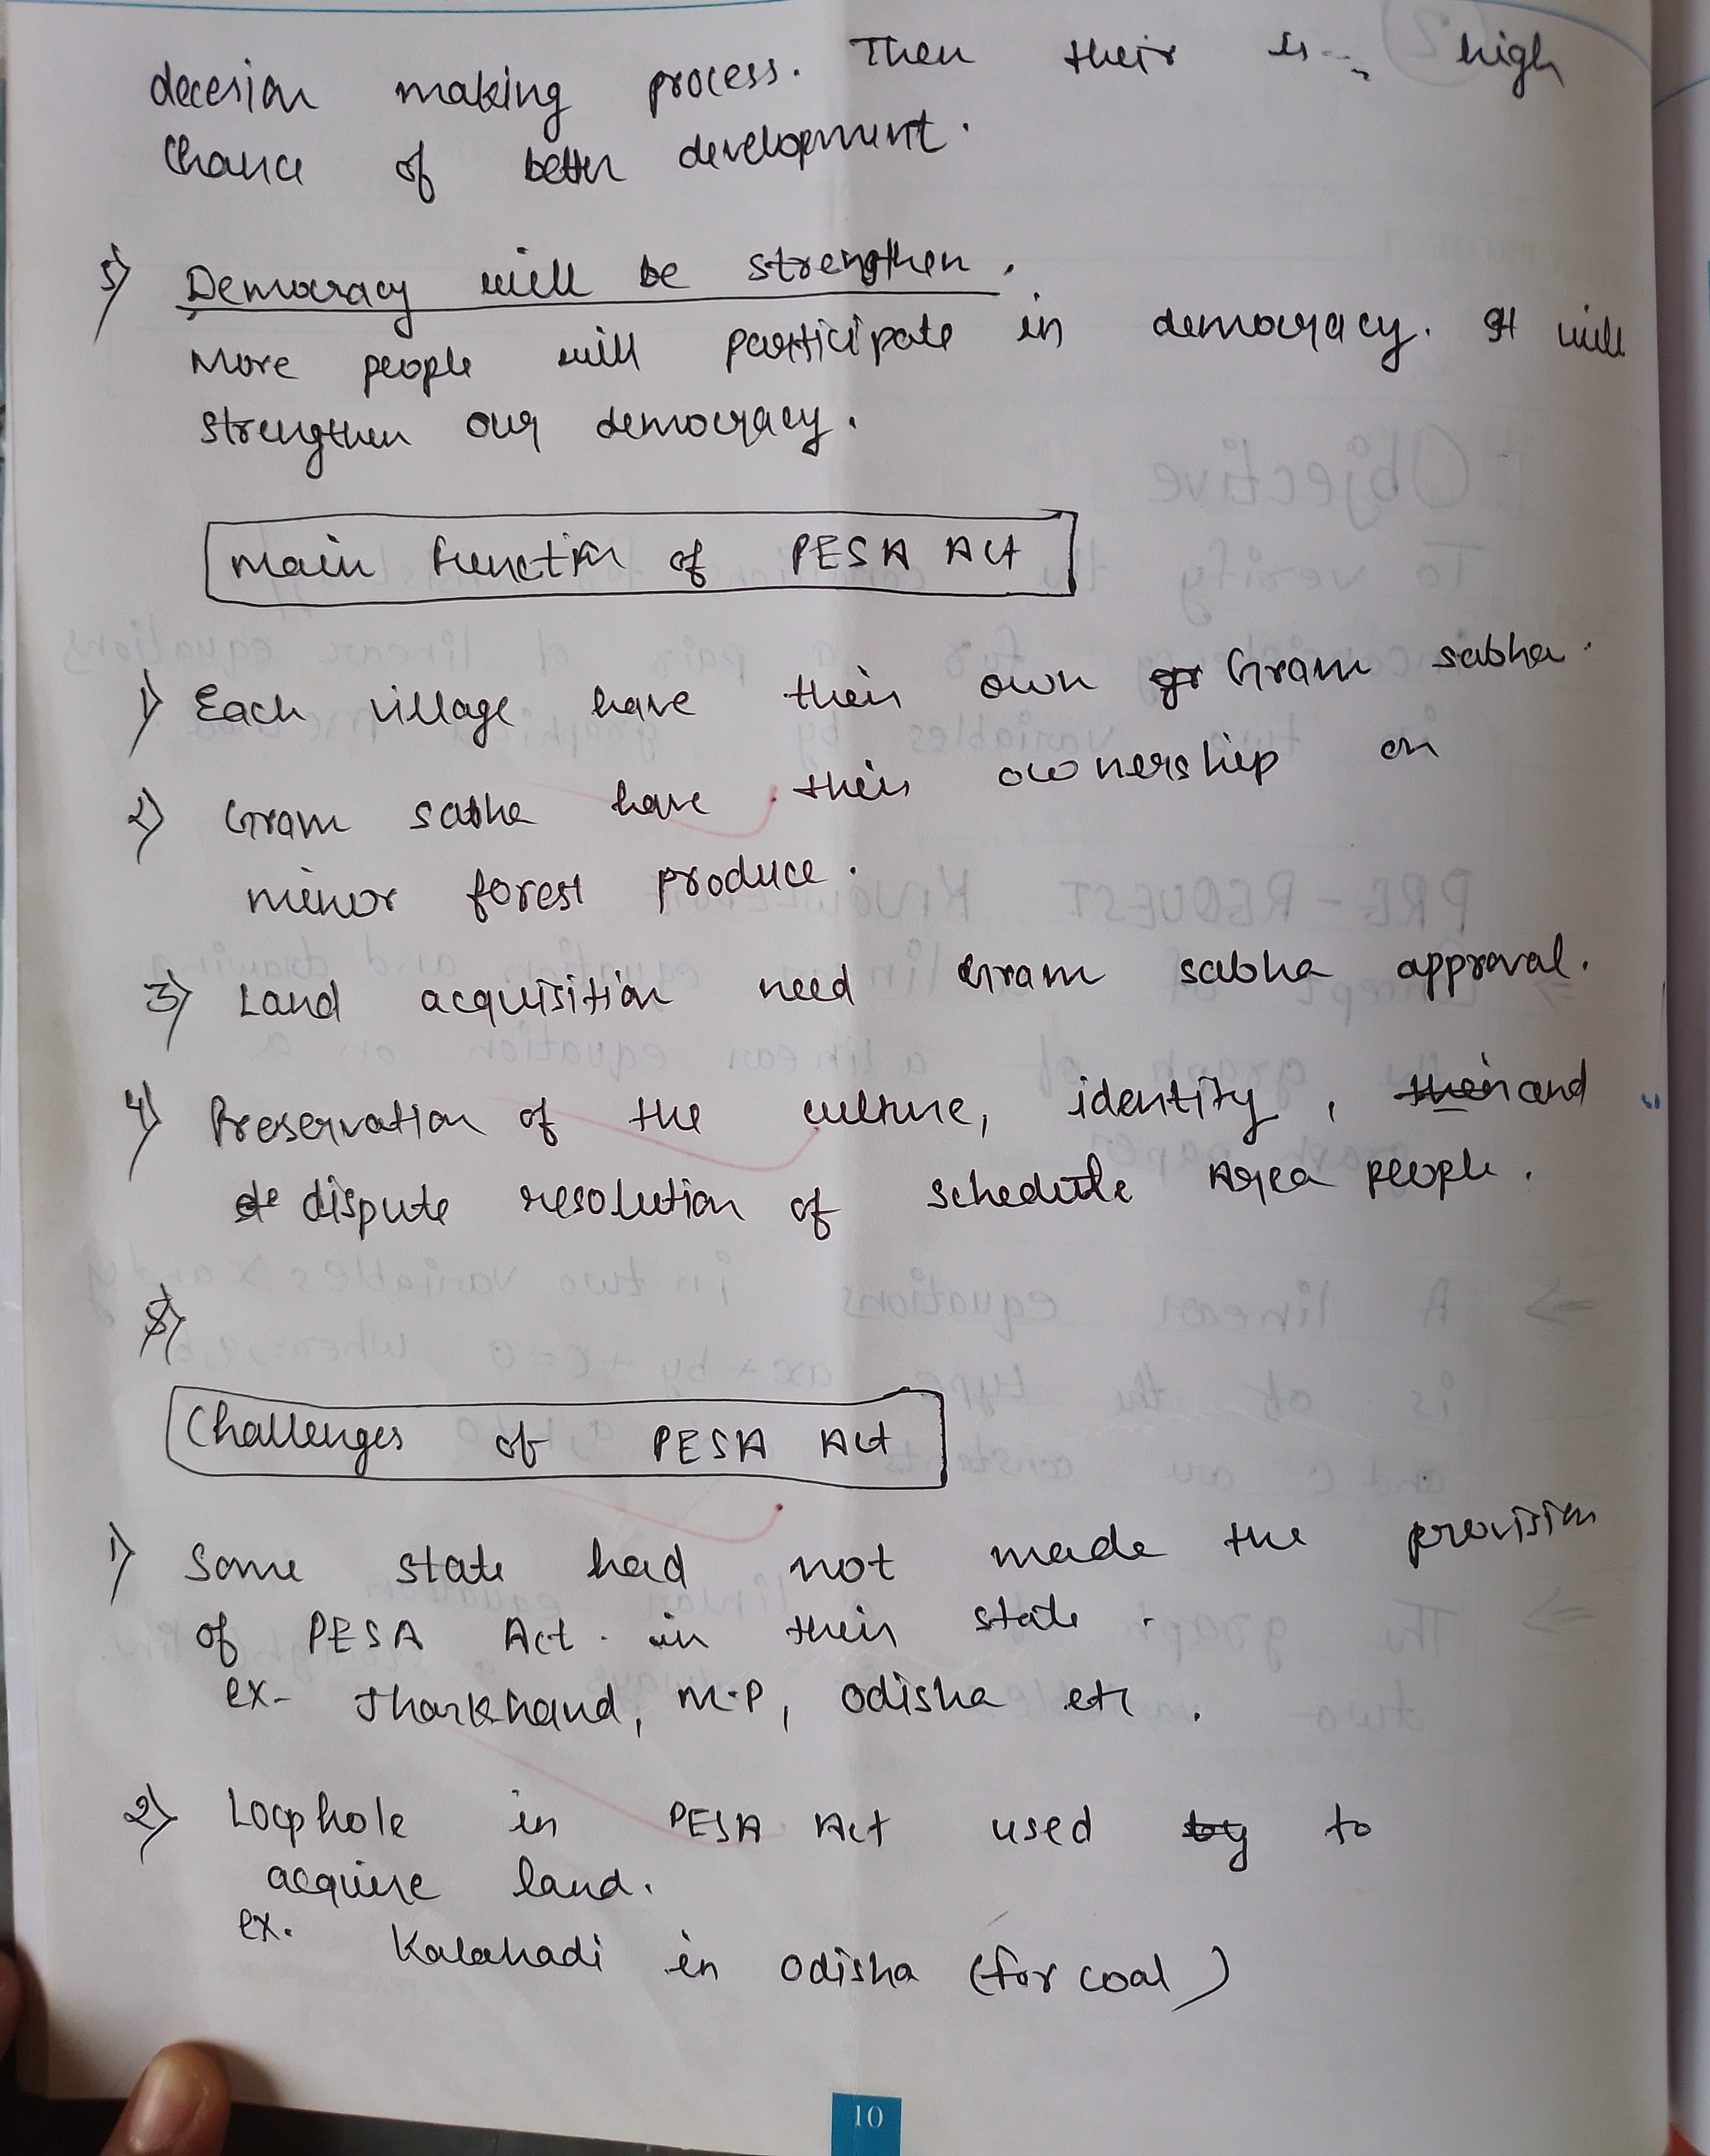 decesion making process. Then their is high
chance of better development.
5) Democracy will be strengthen.
More people will participate in democracy. It will
strengthen our democracy.
Main Function of PESA Act
1) Each village have their own Gram sabha.
2) Gram sabha have their ownership on
minor forest produce.
3) Land acquisition need Gram sabha approval.
4) Preservation of the culture, identity, and
dispute resolution of schedule Area people.
5)
Challenges of PESA Act
1) Some state had not made the provision
of PESA Act in their state.
ex- Jharkhand, M.P, Odisha etc.
2) Loophole in PESA Act used to
acquire land.
ex. Kalahadi in Odisha (for coal)
10